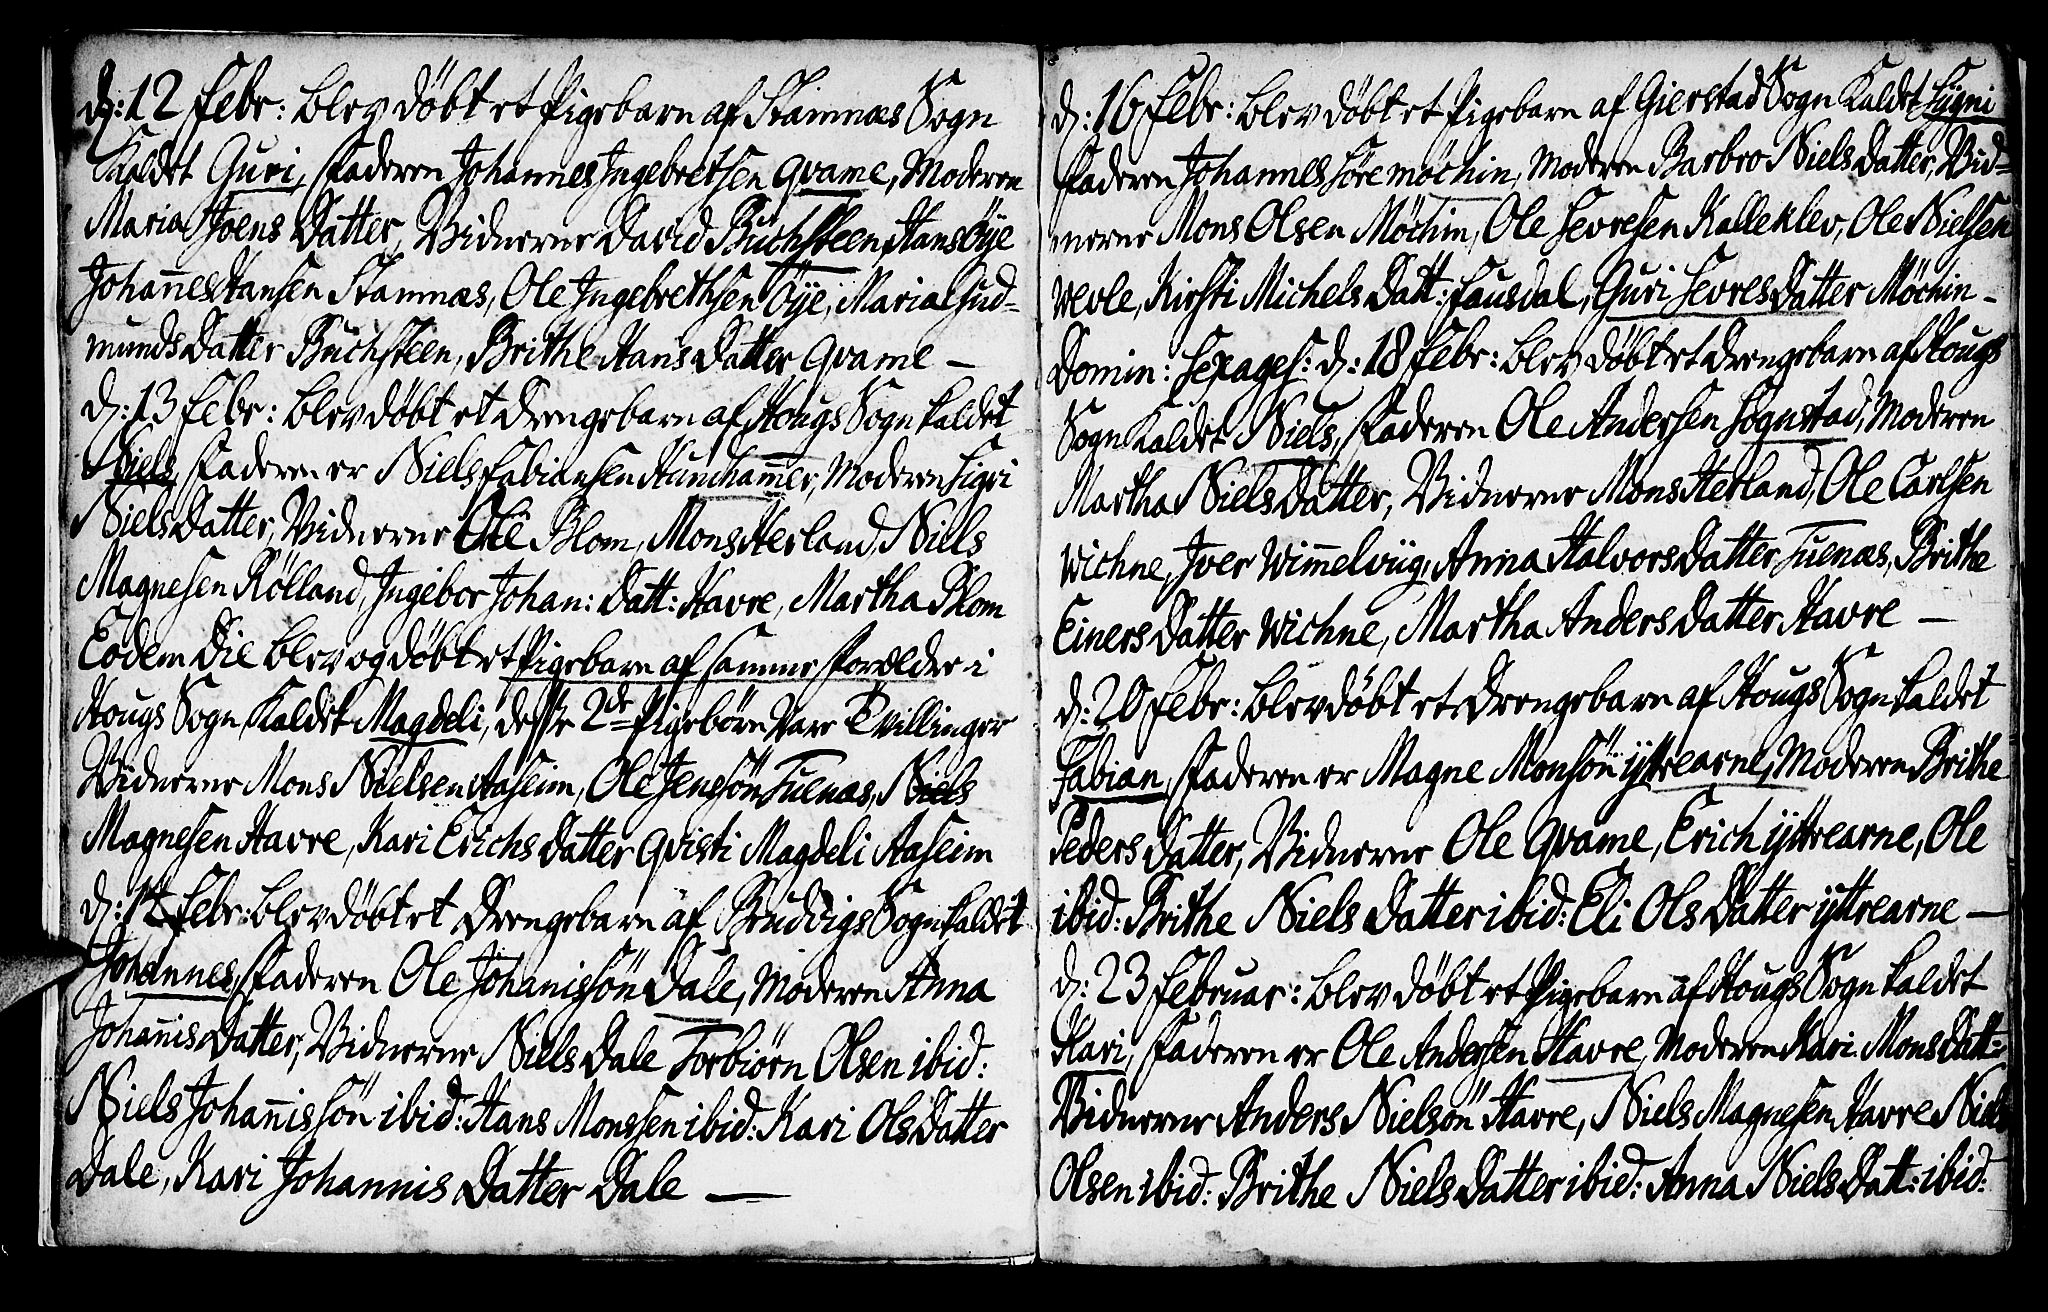 d: 12 Febr: blev döbt et Pigebarn af Stamnæs Sogn
Kaldet Guri, Faderen Johannes Ingebretsen Qvame, Moderen
Maria Joens Datter, Vidnerne David Buchsteen, Hans Öÿe
Johannes Hansen Stamnæs, Ole Ingebrethsen Öÿe, Maria Gud-
munds Datter Buchsteen, Brithe Hans Datter Qvame –
d: 13 Febr: blev döbt et Drengebarn af Hougs Sogn kaldet
Niels, Faderen er Niels Fabiansen Hunhammer, Moderen Sigri
Niels Datter, Vidnerne Ole Blom, Mons Herland, Niels
Magnesen Rölland, Ingebor Johan: Datt: Havre, Martha Blom
Eodem Die blev og döbt et Pigebarn af samme Forældre i
Hougs Sogn, Kaldet Magdeli, desse 2de Pigebörn Vare Tvillinger
Vidnerne Mons Nielsen Aaseim, Ole Jenssön Tuenæs, Niels
Magnesen Havre, Kari Erichs Datter Qvisti Magdeli Aaseim
d: Febr: blev döbt et Drengebarn af Bruvigs Sogn kaldet
Johannes, Faderen Ole Johanissön Dale, Moderen Anna
Johannis Datter, Vidnerne Niels Dale Torbiörn Olsen ibid:
Niels Johannissön ibid: Hans Monssen ibid: Kari Ols Datter
Dale, Kari Johannis Datter Dale —
d: 16 Febr: blev döbt et Pigebarn af Gierstad Sogn Kaldet Sÿgni
Faderen Johannes Söre möchin, Moderen Barbro Niels Datter, Vid-
nerne Mons Olsen Möchin, Ole Sevresen Kalleklev, Ole Nielsen
Vevle, Kirsti Michels Datt: Fausdal, Guri Sevres Datter Möchin –
Domin: Sexages: d: 18 Febr: blev döbt et Drengebarn af Hougs
Sogn Kaldet Niels, Faderen Ole Andersen Sognstad, Moderen
Martha Niels Datter, Vidnerne Mons Herland, Ole Carlsen
Wichne, Iver Wimmelviig, Anna Halvors Datter Tuenæs, Brithe
Einers Datter Wichne, Martha Anders Datter Havre —
d: 20 Febr: blev döbt et Drengebarn af Hougs Sogn kaldet
Fabian, Faderen er Magne Monsön ÿttrearne, Moderen Brithe
Peders Datter, Vidnerne Ole Qvame, Erich ÿttrearne, Ole
ibid: Brithe Niels Datter ibid: Eli Ols Datter ÿttrearne —
d: 23 Februar: blev döbt et Pigebarn af Hougs Sogn kaldet
Kari, Faderen er Ole Andersen Havre, Moderen Kari Mons Datt:
Vidnerne Anders Nielsön Havre, Niels Magnesen Havre Niels
Olsen ibid: Brithe Niels Datter ibid: Anna Niels Datt: ibid: